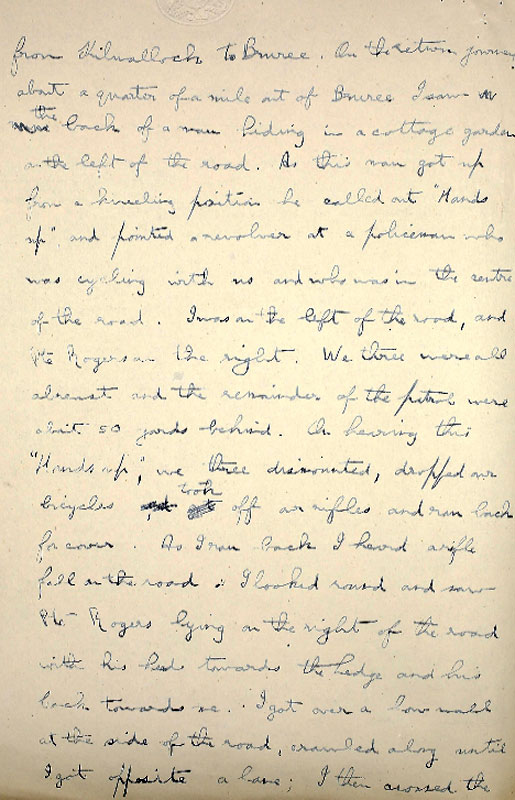 from Kilmallock to Bruree. On the return journey
about a quarter of a mile out of Bruree I saw
the back of a man hiding in a cottage garden
on the left of the road. As this man got up
from a kneeling position he called out "Hands
up" and pointed a revolver at a policeman who
was cycling with us and who was in the centre
of the road. I was on the left of the road, and
Pte Rogers on the right. We three were all
abreast and the remainder of the patrol were
about 50 yards behind. On hearing this
"Hands up", we three dismounted, dropped our
bicycles took off our rifles and ran back
for cover. As I ran back I heard a rifle
fall on the road : I looked round and saw
Pte Rogers lying on the right of the road
with his head towards the hedge and his
back towards me. I got over a low wall
at the side of the road, crawled along until
I got opposite a lane; I then crossed the